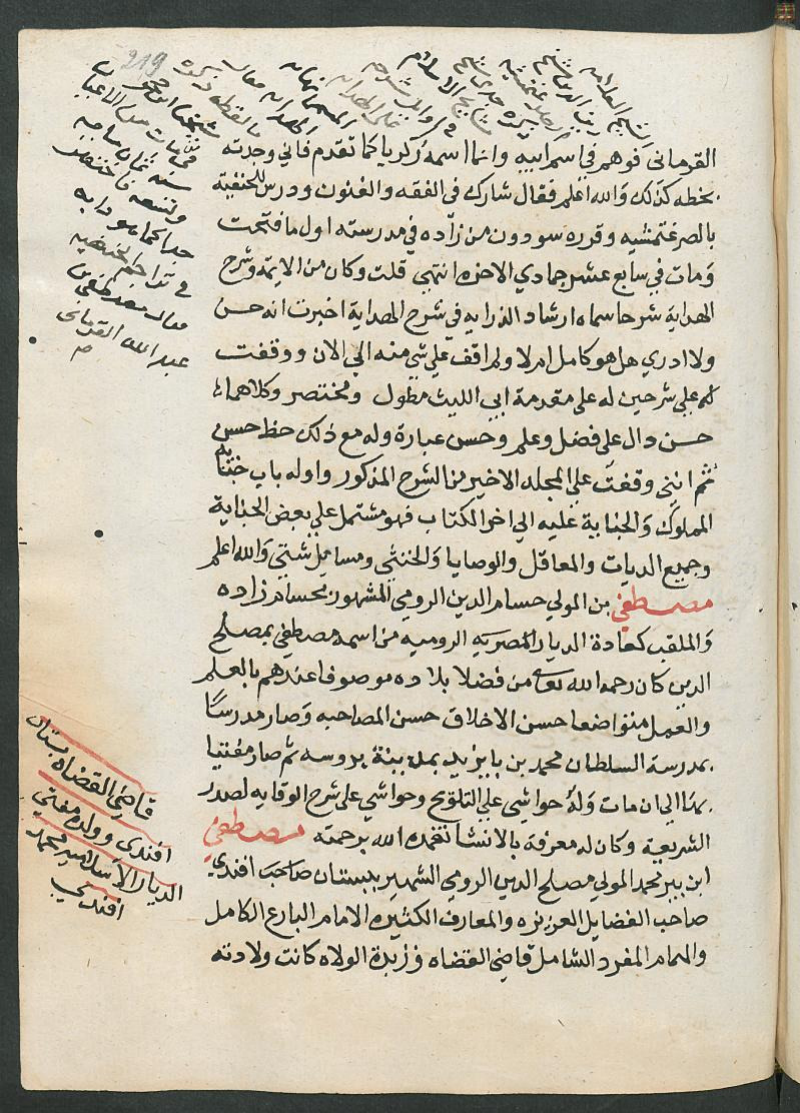 219
القرمانى فوهم في اسم ابيه وانما اسمه زكريا كما تقدم فاني وجدته
بخطه كذلك والله اعلم فقال شارك فى الفقه والفنون ودرس للحنفية
بالصرغتمشيه وقرره سودون من زاده في مدرسته اول ما فتحت
ومات في سابع عشر جمادي الاخره انتهى قلت وكان من الايمة وشرح
الهداية شرحا سماه ارشاد الدرايه في شرح الهداية اخبرت انه حسن
ولا ادري هل هو كامل ام لا ولم اقف علي شي منه الي الان ووقفت
له علي شرحين له على مقدمة ابي الليث مطول ومختصر وكلاهما
حسن دال علي فضل وعلم وحسن عبارة وله مع ذلك حظ حسن
ثم انني وقفت علي المجلد الاخير من الشرح المذكور واوله باب جناية
المملوك والجناية عليه الي اخر الكتاب فهو مشتمل علي بعض الجناية
وجميع الديات والمعاقل والوصايا والخنثي ومسايل شتي والله اعلم
مصطفي بن المولي حسام الدين الرومي المشهور بحسام زاده
والملقب كعادة الديار المصريه الروميه من اسمه مصطفي بمصلح
الدين كان رحمه الله تعالى من فضلا بلاده موصوفا عندهم بالعلم
والعمل متواضعا حسن الاخلاق حسن المصاحبه وصار مدرسا
بمدرسة السلطان محمد بن بايزيد بمدينة بروسه ثم صار مفتيا
بها الي ان مات وله حواشي علي التلويح وحواشي على شرح الوقايه لصدر
الشريعة وكان له معرفة بالانشا تغمده الله برحمته مصطفي
ابن بير محمد المولي مصلح الدين الرومي الشهير ببستان صاحب افندي
صاحب الفضايل العزيزه والمعارف الكثيره الامام البارع الكامل
والهمام المفرد الشامل قاضي القضاه وزبدة الولاه كانت ولادته
شيخنا ابن حجر
سنة ثمان ماية
جدا كما هو دابه
في تراجم الحنفيه
فقال مصطفى بن
عبد الله القرمانى
قاضي القضاه بستان
افندى وولده مفتي
الديار الاسلاميه محمد
افندي